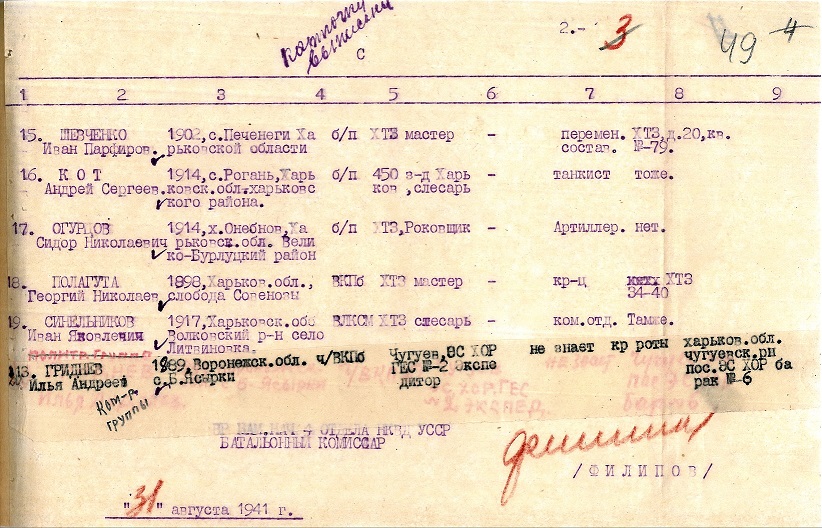 2.- 3 49 4
С
1 2 3 4 5 6 7 8 9
15. ШЕВЧЕНКО 1902,с.Печенеги Ха б/п ХТЗ мастер - перемен. ХТЗ,д.20,кв.
Иван Парфиров. рьковской области состав. №-79.
16. К О Т 1914,с.Рогань,Харь б/п 450 з-д Харь - танкист тоже.
Андрей Сергеев. ковск.обл.харьковс ков ,слесарь
кого района.
17. ОГУРЦОВ 1914,х.Онебнов,Ха б/п ХТЗ,Роковщик - Артиллер. нет.
Сидор Николаевич рьковск.обл. Вели
ко-Бурлуцкий район
18. ПОЛАГУТА 1898,Харьков.обл., ВКПб ХТЗ мастер - кр-ц ХТЗ
Георгий Николаев. слобода Совеновы 34-40
19. СИНЕЛЬНИКОВ 1917,Харьковск.обб ВЛКСМ ХТЗ слесарь - ком.отд. Тамже.
Иван Яковлевич Волковский р-н село
Литвиновка.
13. ГРИДНЕВ 1989,Воронежск.обл. ч/ВКПб Чугуев,ЭС ХОР не знает кр роты харьков.обл.
Илья Андреев с.Б.Ясырки ГЕС №-2 Экспе чугуевск.рн
дитор пос.ЭС ХОР ба
рак №-6
ком-р.
группы
ОТДЕЛА НКВД УССР
БАТАЛЬОННЫЙ КОМИССАР
/ Ф И Л И П О В /
"31" августа 1941 г.